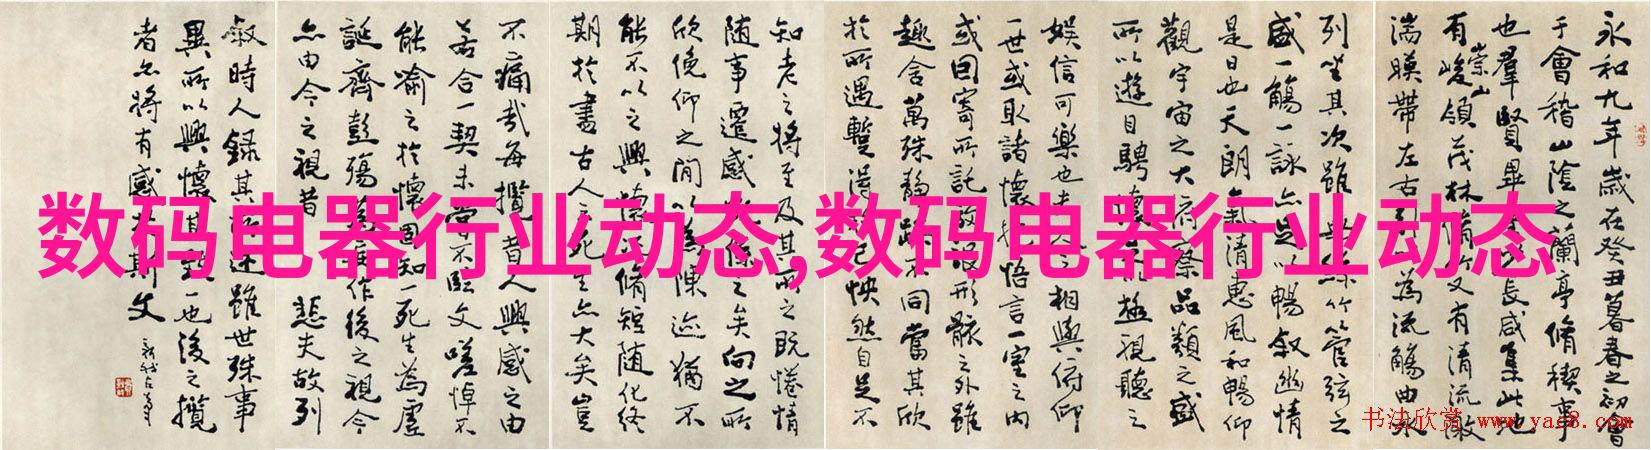 永和九年歲在癸丑暮春之初會
于會稽山陰之蘭亭脩稧事
也羣賢畢長咸集此地
有崇山峻領茂林脩竹又有清流激
湍暎帶左右引為流觴曲水
列坐其次雖無絲竹管弦之
盛一觴一詠亦足以暢敘幽情
是日也天朗氣清惠風和暢仰
觀宇宙之大俯察品類之盛
所以遊目騁懷足以極視聽之
娛信可樂也夫人之相與俯仰
一世或取諸懷抱悟言一室之內
或因寄所託放浪形骸之外雖
趣舍萬殊靜躁不同當其欣
於所遇暫得己怏然自足不
知老之將至及其所之既惓情
随事遷感慨係之矣向之所
欣俛仰之閒以為陳迹猶不
能不以之興懷況脩短随化終
期於盡古人云死生亦大矣豈
不痛哉每攬昔人興感之由
若合一契未嘗不臨文嗟悼不
能喻之於懷固知一死生為虛
誕齊彭殤為妄作後之視今
亦由今之視昔 悲夫故列
敘時人錄其所述雖世殊事
異所以興懷其致一也後之攬
者亦將有感於斯文
数码电器行业动态,数码电器行业动态
书法欣赏 www.yac8.com